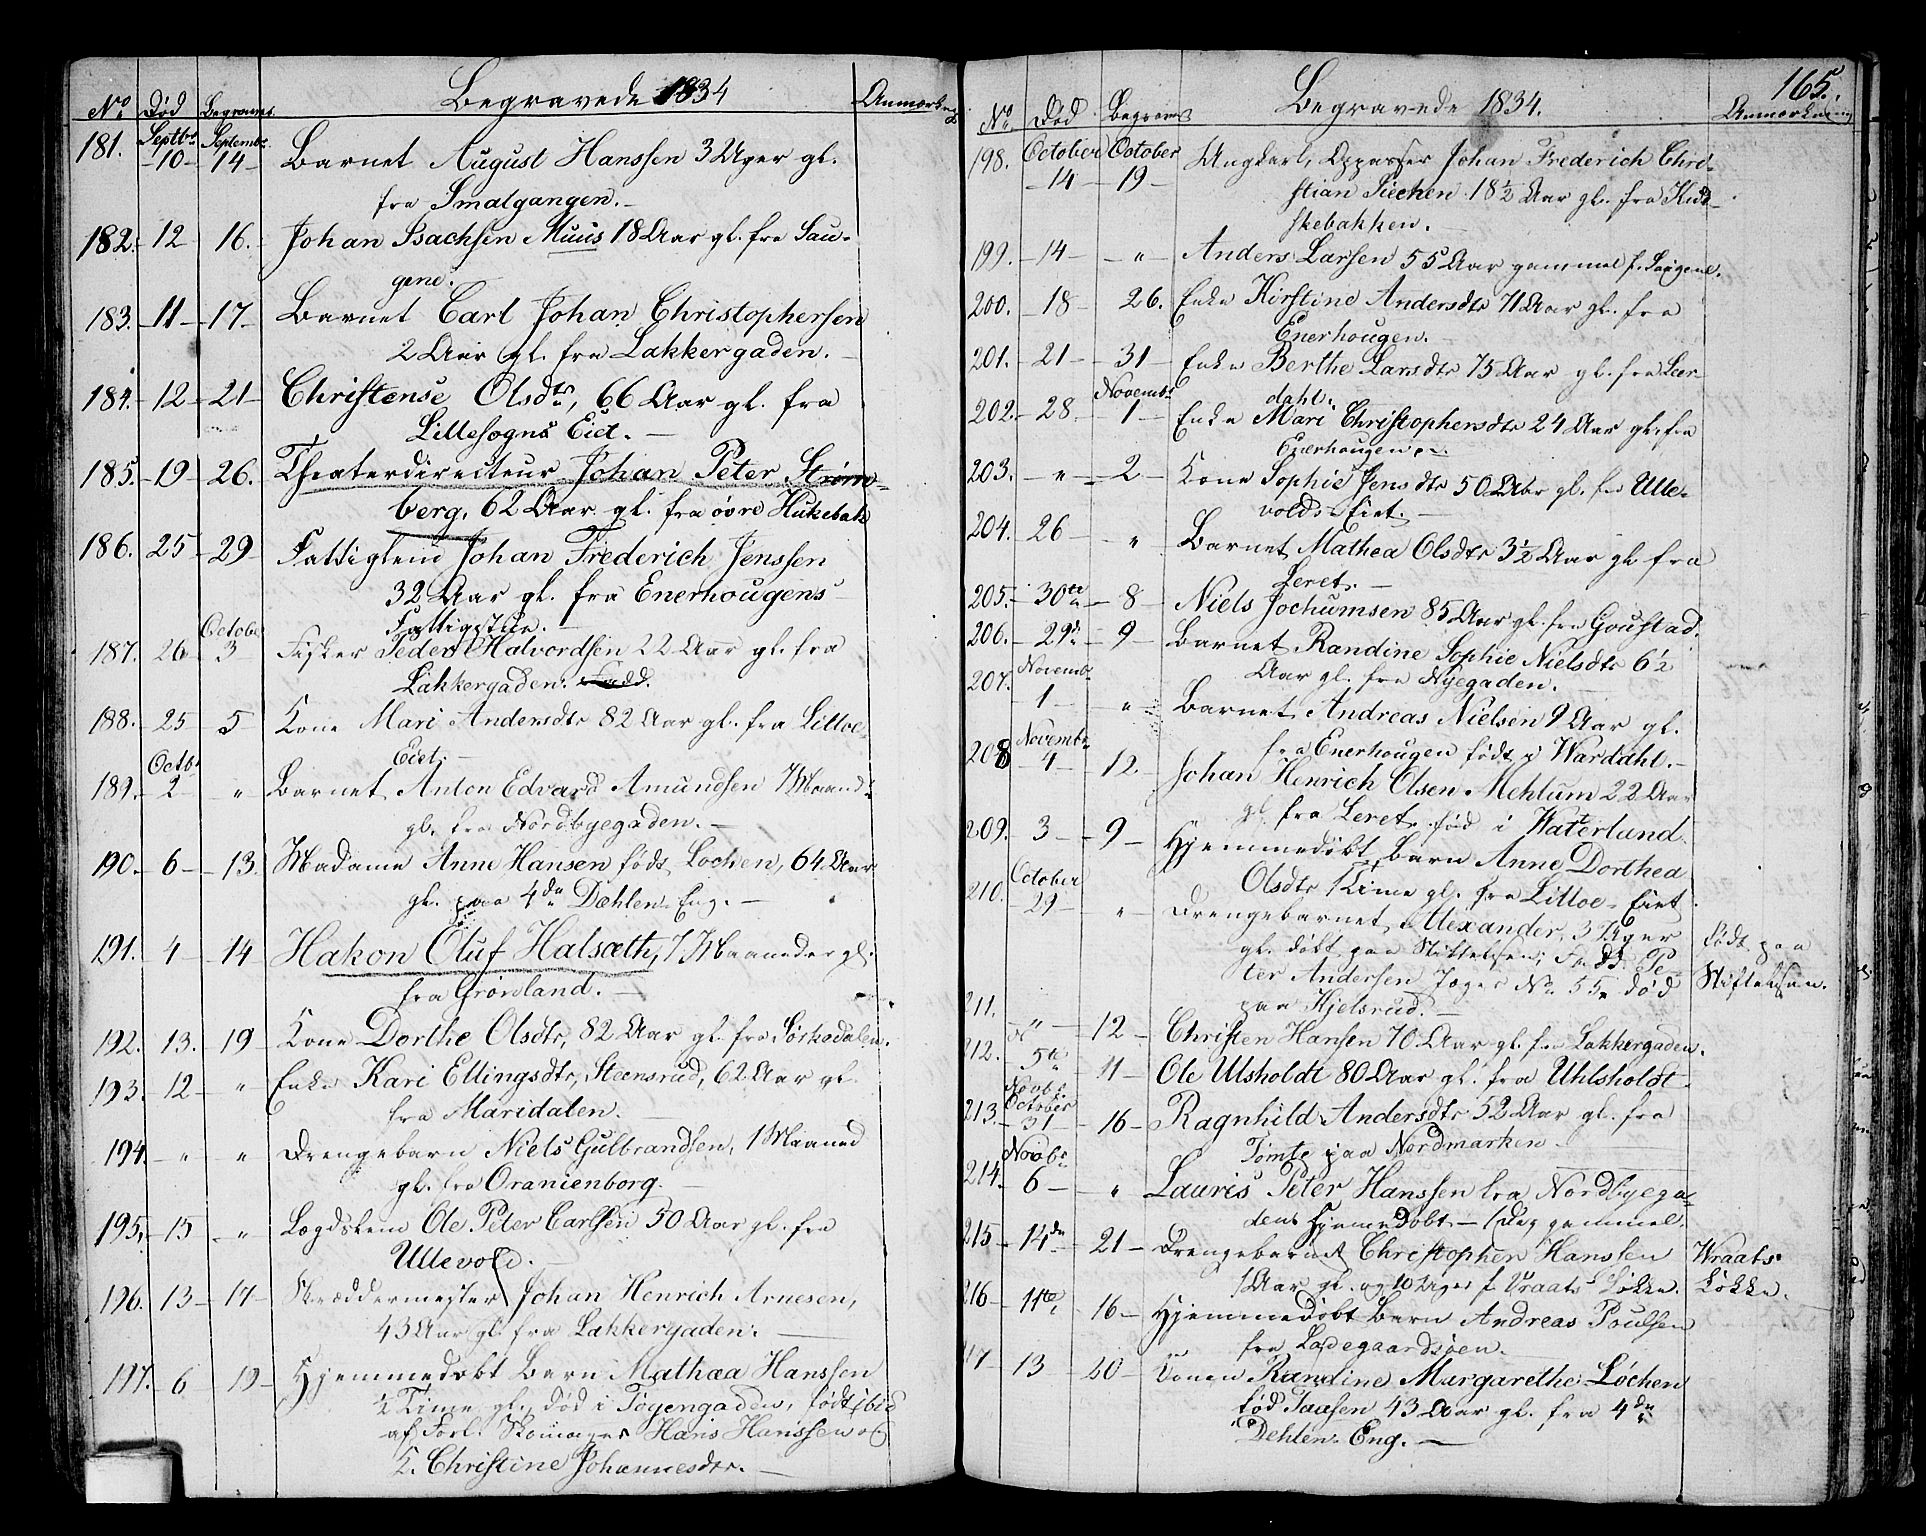 Begravede 1834
No Død Begravs. Anmærkng
181. Septbr 10 Septembr 14 Barnet August Hanssen 3 Uger gl.
fra Smalgangen.
182. 12 16. Johan Isachsen Muus 18 Aar gl. fra Sau-
gene.
183. 11 17 Barnet Carl Johan Christophersen
2 Aar gl. fra Lakkergaden.
184. 12 21 Christense Olsdtr, 66 Aar gl. fra
Lillesogns Eiet.
185. 19 26. Theaterdirecteur Johan Peter Strøm-
berg, 62 Aar gl. fra øvre Hukebak
186. 25 29 Fattiglem Johan Frederich Jenssen
32 Aar gl. fra Enerhougens
Fattigstue.
187. 26 October 3 Fisker Peder Halvordsen 22 Aar gl. fra
Lakkergaden.
188. 25 5 Kone Mari Andersdtr 82 Aar gl. fra Lilloe-
Eiet.
189. Octbr 2 " Barnet Anton Edvard Amundsen 7 Maand
gl. fra Nordbyegaden.
190. 6 13. Madame Anne Hansen født Lochen, 64 Aar
gl. paa 4de Dæhlen-Eng.
191. 4 14 Hakon Oluf Halsæth, 7 Maaneder gl.
fra Grønland.
192. 13. 19 Kone Dorthe Olsdtr, 82 Aar gl. fra Sørkedalen.
193. 12 " Enke Kari Ellingsdtr, Steensrud, 62 Aar gl.
fra Maridalen.
194. " " Drengebarn Niels Gulbrandsen, 1 Maaned
gl. fra Oranienborg.
195. 15 " Lægdslem Ole Peter Carlsen 50 Aar gl. fra
Ullevold.
196. 13 17 Skræddermester Johan Henrich Arnesen,
43 Aar gl. fra Lakkergaden.
197. 6 19 Hjemmedøbt Barn Mathæa Hanssen
½ Time gl. død i Tøyengaden, født ibid
af Forl. Skomager Hans Hanssen og
K. Christine Johannesdtr.
165.
Begravede 1834.
No. Død Begravs Anmærkning
198. October 14 October 19 Ungkarl, Oppasser Johan Frederich Chri-
stian Siechen 18½ Aar gl. fra Hud-
skebakken.
199. 14 " Anders Larsen 55 Aar gammel f. Saugene.
200. 18 26. Enke Kirstine Andersdtr 71 Aar gl. fra
Enerhougen.
201. 21 31 Enke Berthe Larsdtr 75 Aar gl. fra Lær-
dahl.
202. 28 Novembr 1 Enke Mari Christophersdtr 24 Aar gl. fra
Enerhougen.
203. " 2 Kone Sophie Jensdtr 50 Aar gl. fra Ulle-
volds-Eiet.
204. 26 " Barnet Mathea Olsdtr 3½ Aar gl. fra
Leret.
205. 30te 8 Niels Jochumsen 85 Aar gl. fra Goustad.
206. 29d 9 Barnet Randine Sophie Nielsdtr 6½
Aar gl. fra Nyegaden.
207. Novembr 1 " Barnet Andreas Nielsen 9 Aar gl.
fra Enerhougen født i Wardahl.
208 Novembr 4 12. Johan Henrich Olsen Mehlum 22 Aar
gl. fra Leret, fød i Waterland.
209. 3 9 Hjemmedøbt Barn Anne Dorthea
Olsdtr 1 Time gl. fra Lilloe-Eiet.
210. October 29 " Drengebarnet Alexander, 3 Uger
gl. døbt paa Stiftelsen; Fadr Pe-
ter Andersen Jæger No 55. død
paa Hjelsrud.
født paa
Stiftelsen.
211. " 12 Christen Hansen 70 Aar gl. fra Lakkergaden.
212. 5te Novbr 11 Ole Ulsholdt 80 Aar gl. fra Uhlsholdt.
213. October 31 16 Ragnhild Andersdtr 52 Aar gl. fra
Tømte paa Nordmarken
214. Novbr 6 " Lauris Peter Hanssen fra Nordbyega-
den Hjemedøbt 1 Dag gammel.
215 14de 21 Drengebarnet Christopher Hanssen
1 Aar gl. og 10 Uger f. Vraats Løkke.
Wraats
Løkke.
216 11te 16 Hjemmedøbt Barn Andreas Poulsen
fra Ladegaardsøen.
17 13 20 Konen Randine Margarethe Løchen
fød Pausen 43 Aar gl. fra 4de
Dehlen-Eng.